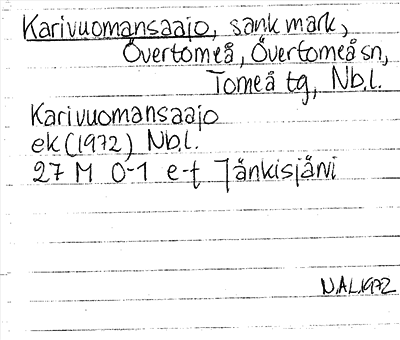 Karivuomansaajo, sank mark,
Övertorneå, Övertorneå sn,
Torneå tg, Nb.l.
Karivuomansaajo
ek (1972) Nb.l.
27 M 0-1 e-f Jänkisjärvi
N.A.L.1972